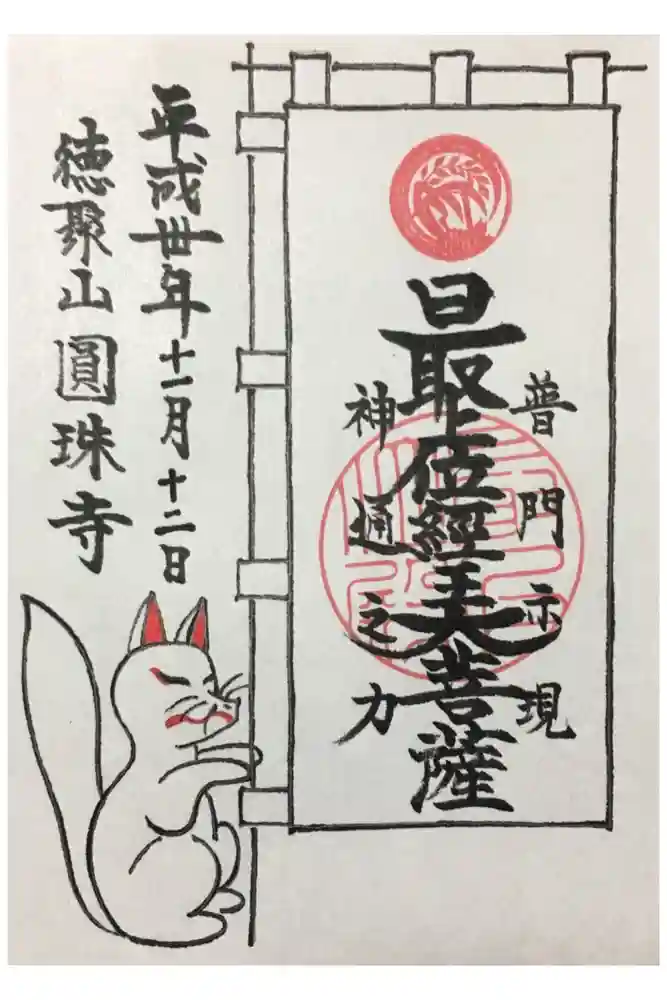 普門示現
最上位經王大菩薩
神通之力
平成卅年十一月十二日
徳聚山圓珠寺